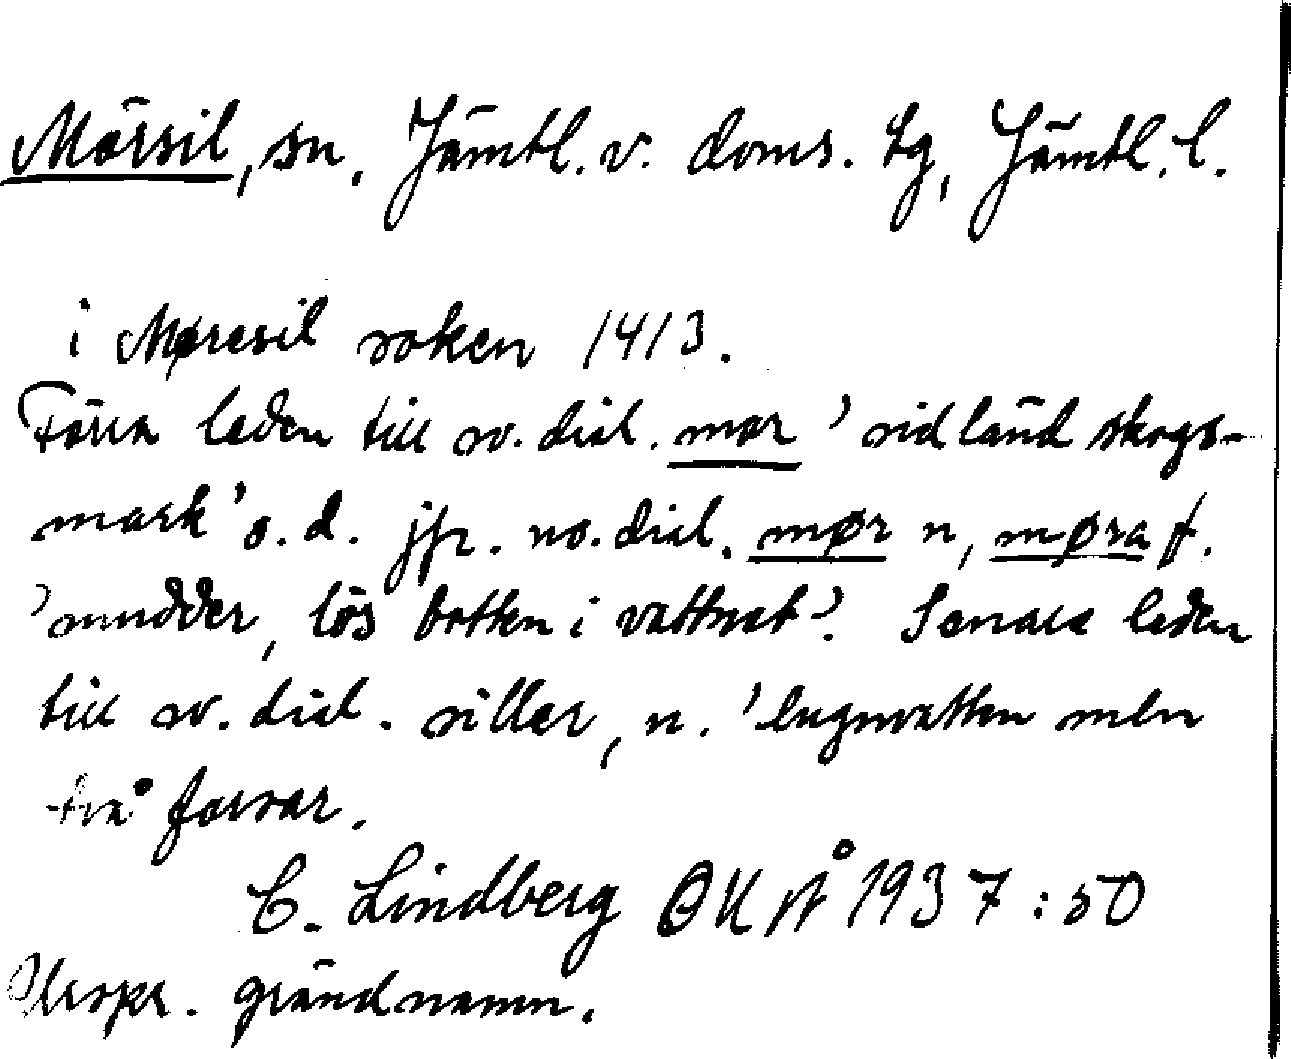 Mörsil, sn, Jämtl. v. doms. tg, Jämtl. l.
i Møresil soken 1413.
Förra leden till sv. dial. mor 'sidländ skogs-
mark' o. d. jfr. no. dial. mør n, møra f.
'mudder, lös botten i vattnet'. Senare leden
till sv. dial. siller, n. 'lugnvatten mln
två forsar.
C. Lindberg OKÅ 1937:50
Urspr. grändnamn.